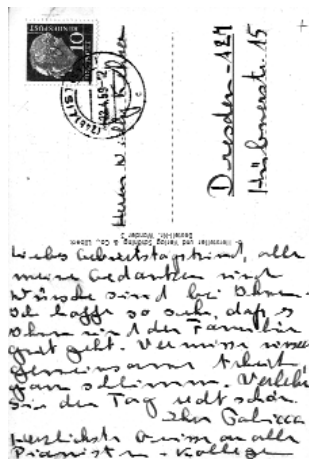 10
DEUTSCHE
BUNDESPOST
-2.4.59-12
Herrn Willy Kehrer
Dresden-A24
Hübnerstr. 15
Hersteller und Verlag Schöning & Co., Lübeck
Bestell-Nr. Wunder
Liebes Geburtstagskind, alle
meine Gedanken und
Wünsche sind bei Ihnen.
Ich hoffe so sehr, daß es
Ihnen und der Familie
gut geht. Vermisse unsere
gemeinsame Arbeit
ganz schlimm. Verleben
Sie den Tag recht schön.
Ihre
Herzlichste Grüsse an alle
Pianisten-Kollegen